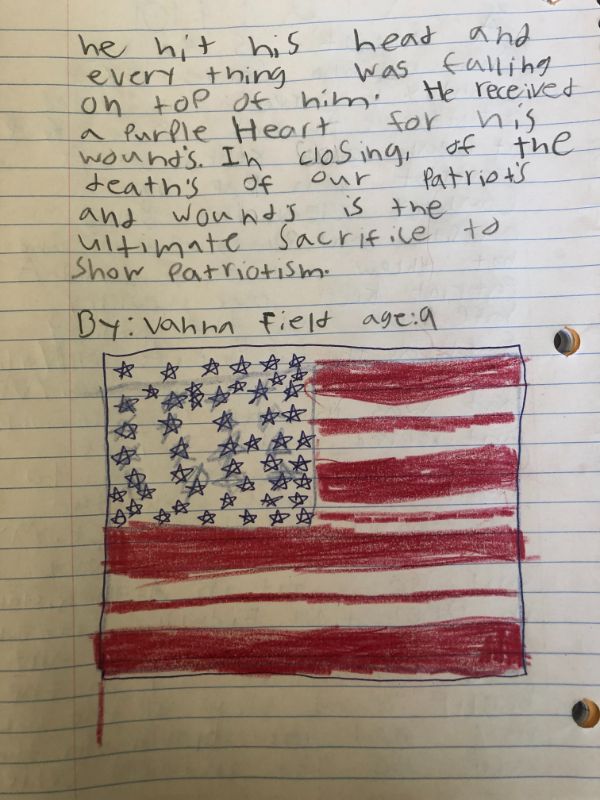 he hit his head and
every thing was falling
on top of him. He received
a Purple Heart for his
wound's. In closing, of the
death's of our Patriot's
and wound's is the
ultimate Sacrifice to
Show Patriotism.
By: Vanna Field age:9